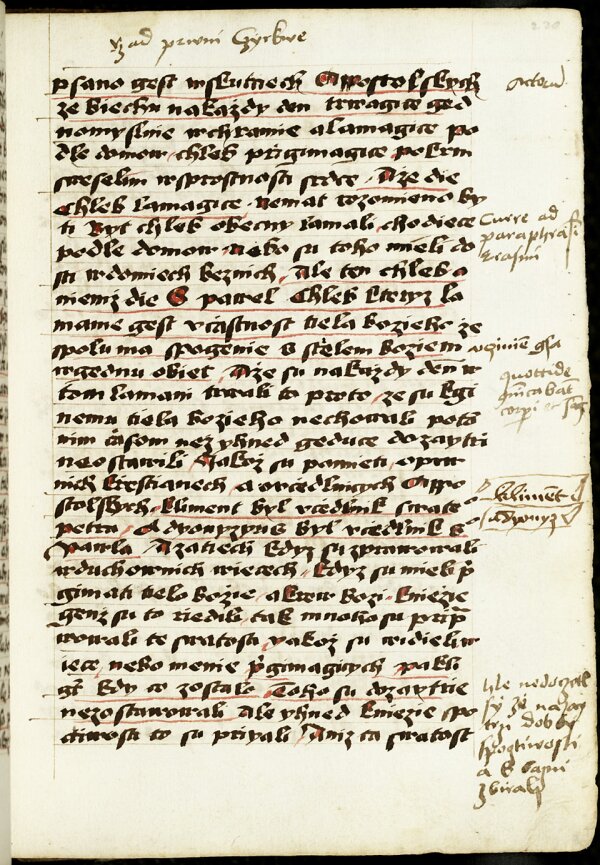 Rzad prwni Cyrkwe
220
psano gest wskutciech Appostolskych
ze biechu nakazdy den trwagice ged
nomyslnie wchramie alamagice po
dle domow chleb przigimagice pokrm
sweselim wsprostnosti srdce Aze die
Chleb lamagice nemat rozomieno by
ti Byt chleb obecny lamali chodiece
podle domow nebo su toho mieli do
sti wdomiech beznich Ale ten chleb o
niemz die S pawel Chleb kteryz la
mame gest vciastnost tiela bozieho ze
spolu ma spogenie s stielem boziem
wgednu obiet Aze su nakazdy den w
tom lamani trwali to proto ze su k gi
nemu tiela bozieho nechowali poto
nim casom nez yhned geduce dozaytri
neostawili Jakoz su pamieti oprw
nich krestianech a ovcedlnicych Appo
stolskych kliment byl vcedlnik swate
petra Adyonyzyus byl vcedlnik S
Pawla Azatiech kdyz su zprawowali
wduchownich wiecech kdyz su mieli p
gimati tielo bozie a krew bozi kniezie
genz su to riedili tak mnoho su przip
wowali te swatosti yakoz su widieli w
iece nebo menie pgimagicych pakli
gt kdy co zostalo Toho su dozaytrie
nezostawowali Ale yhned kniezie spo
ctiwosti to su prziyali Aniz ta swatost
Actorum
Curre ad
paraphrasi
Erasmi
quottide
corpi
kliment
adyonyz
hle nedoczek
sy ze nazay
tri dobre
spogtiwosti
a S Cani
zbirali